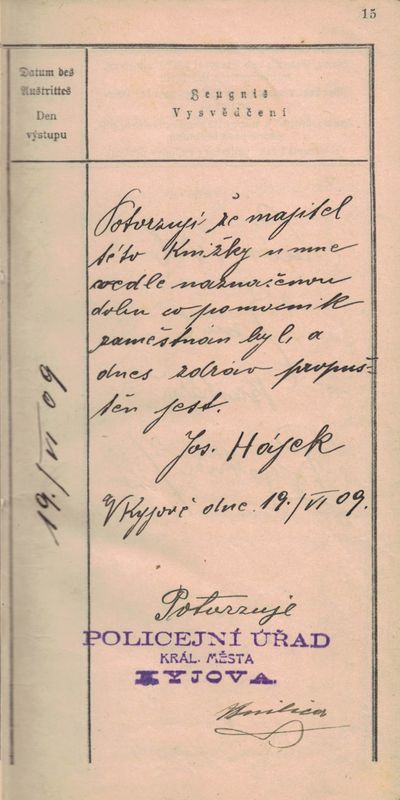 15
Datum des
Austrittes
Den
výstupu
Zeugniß
Vysvědčení
Potvrzuji že majitel
této knížky u mne
vedle naznačenou
dobu co pomocník
zaměstnán byl, a
dnes zdráv propuš-
těn jest.
Jos. Hájek
V Kyjově dne 19./VI 09.
19./VI 09
Potvrzuje
POLICEJNÍ ÚŘAD
KRÁL. MĚSTA
KYJOVA.